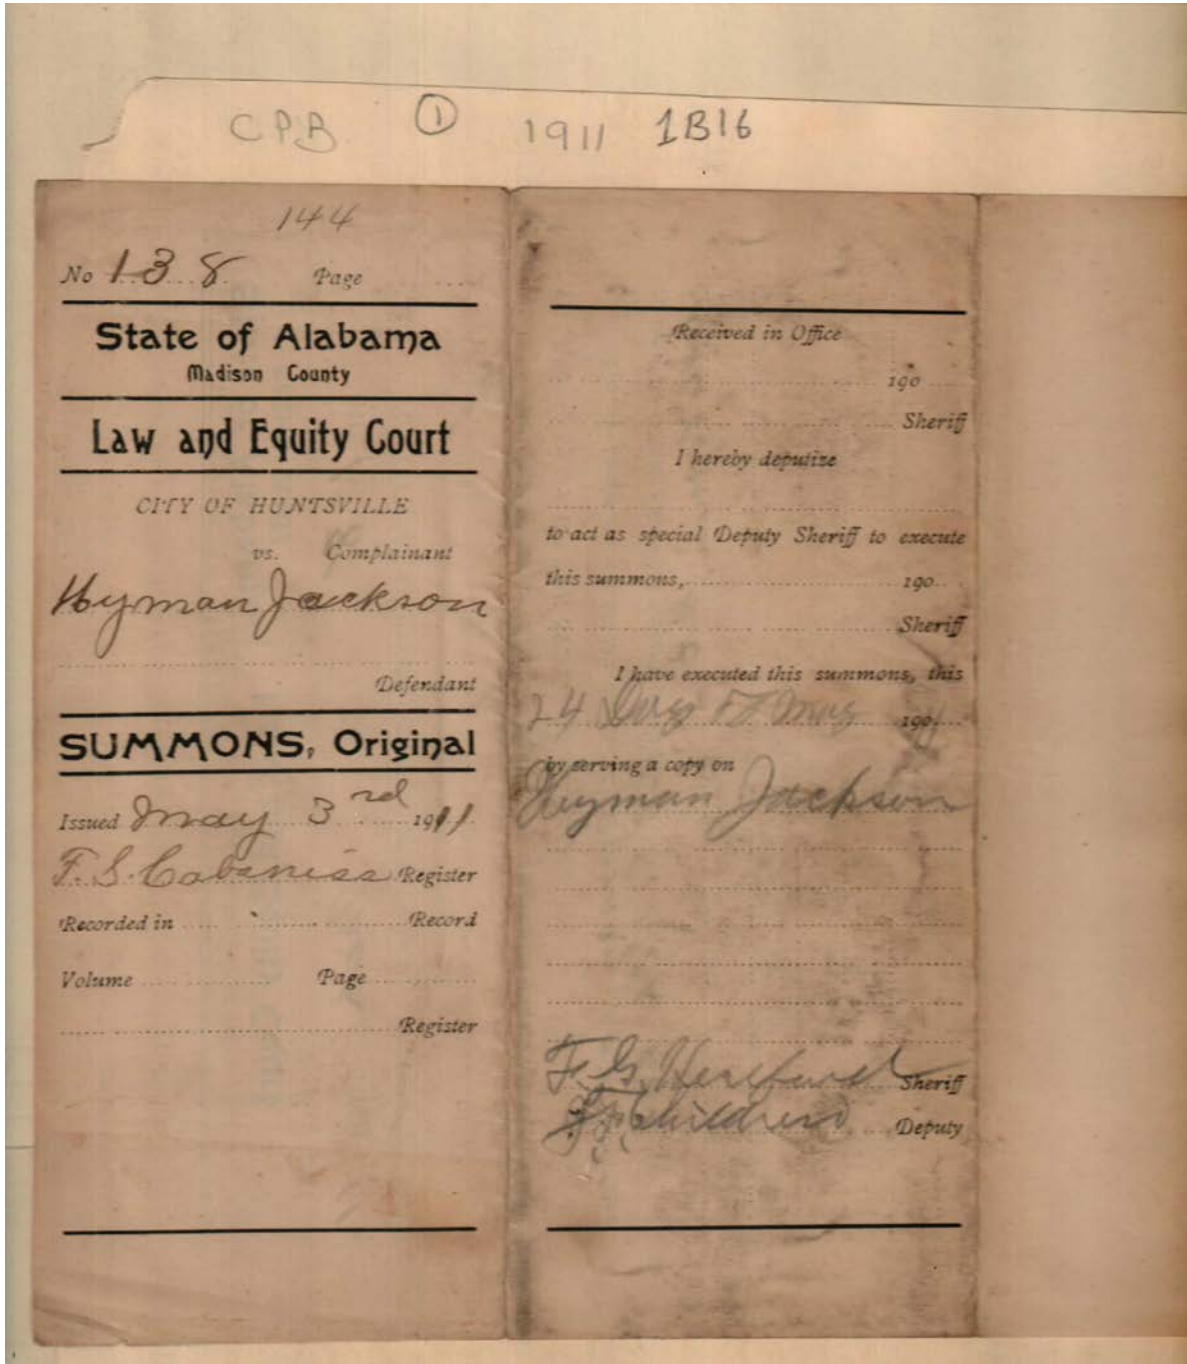 CPB ① 1911 1B16
144
No 138 Page
State of Alabama
Madison County
Law and Equity Court
CITY OF HUNTSVILLE
vs. Complainant
Hyman Jackson
Defendant
SUMMONS, Original
Issued May 3rd 1911
F. S. Cabaniss Register
Recorded in Record
Volume Page
Register
Received in Office
190
Sheriff
I hereby deputize
to act as special Deputy Sheriff to execute
this summons, 190
Sheriff
I have executed this summons, this
24 Day of May 190
by serving a copy on
Heyman Jackson
F. G. Hereford Sheriff
Childress Deputy